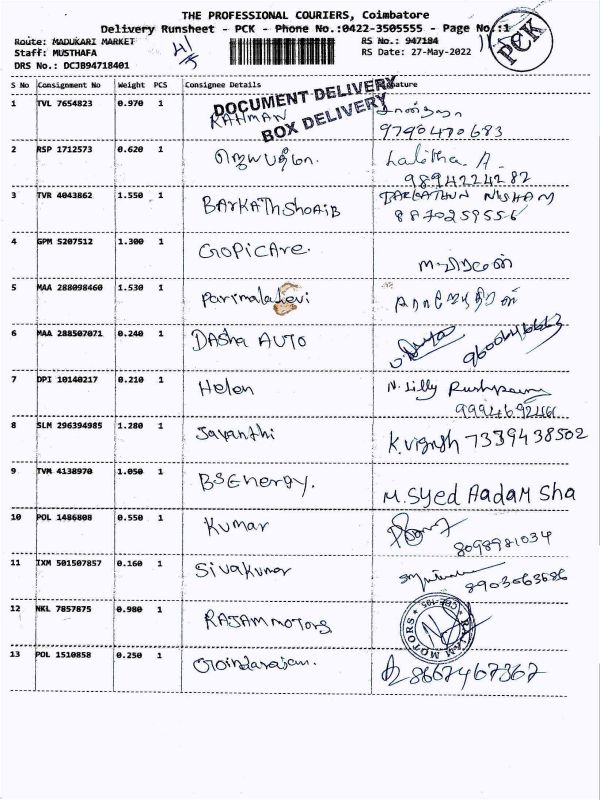 THE PROFESSIONAL COURIERS, Coimbatore
Delivery Runsheet - PCK - Phone No.:0422-3505555 - Page No.:1
Route: MADUKARI MARKET RS No.: 947184
Staff: MUSTHAFA RS Date: 27-May-2022
DRS No.: DCJB94718401
PCK
S No Consignment No Weight PCS Consignee Details Signature
DOCUMENT DELIVERY
BOX DELIVERY
1 TVL 7654823 0.970 1 RAHMAN
9790470683
2 RSP 1712573 0.620 1 Lalitha. A.
9894224282
3 TVR 4043862 1.550 1 BARKATHShOAIB BARKATHUN NISHA M
8870259556
4 GPM 5207512 1.300 1 GOPICARe.
5 MAA 288098460 1.530 1 Parimaladevi
6 MAA 288507071 0.240 1 DASha AUTO
7 DPI 10140217 0.210 1 Helen N. Lilly
8 SLM 296394985 1.280 1 Jayanthi K.vignesh 7339438502
9 TVM 4138970 1.050 1 BSEnergy. M.Syed AadAM Sha
10 POL 1486808 0.550 1 Kumar
8098981034
11 IXM 501507857 0.160 1 Sivakumar
8903063686
12 NKL 7857875 0.980 1 RAJAM MOTORS
RAJAM MOTORS
13 POL 1510858 0.250 1 Govindarajan. 8667467367